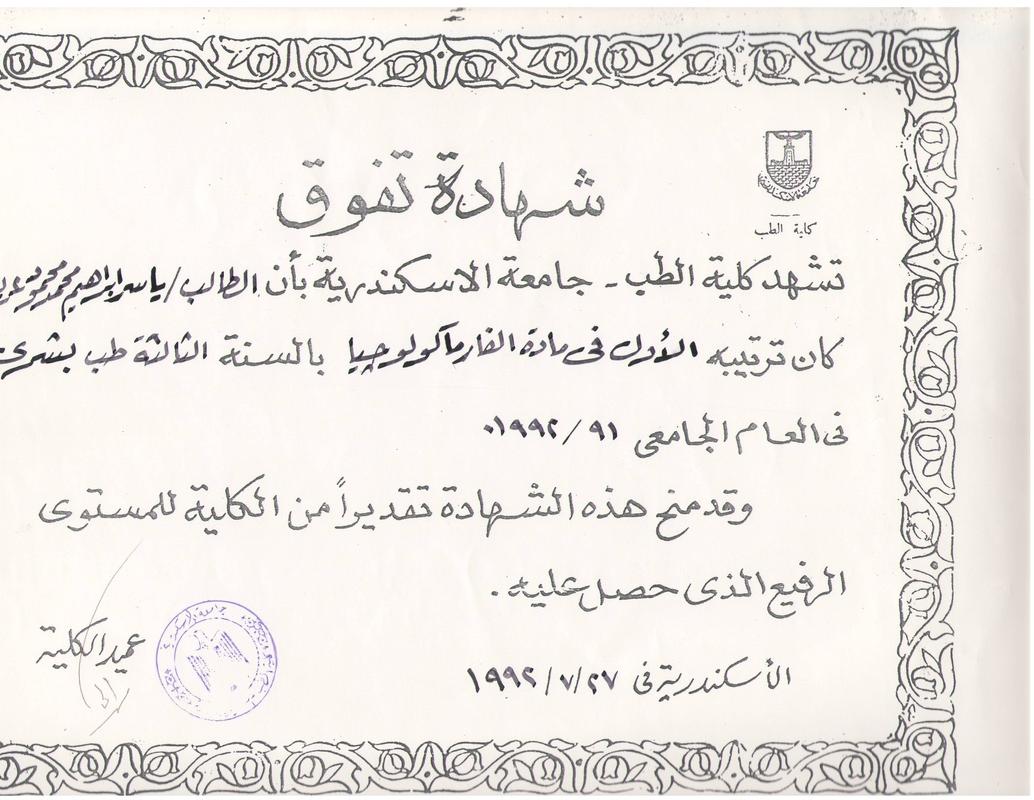 جامعة الاسكندرية
كلية الطب
شهادة تفوق
تشهد كلية الطب - جامعة الاسكندرية بأن الطالب / ياسر ابراهيم محمد محمود
كان ترتيبه الأول فى مادة الفارماكولوجيا بالسنة الثالثة طب بشرى
فى العام الجامعى ٩١ / ١٩٩٢.
وقد منح هذه الشهادة تقديراً من الكلية للمستوى
الرفيع الذى حصل عليه.
الأسكندرية فى ٢٧ / ٧ / ١٩٩٢
عميد الكلية